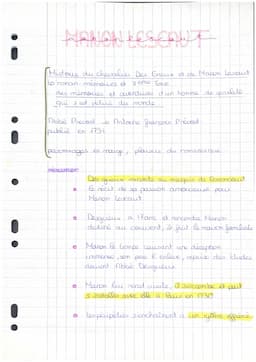 MANON LESCAUT
Histoire du chevalier Des Grieux et de Manon Lescaut
le roman mémoires et 7ème Tome
des mémoires et aventures d'un homme de qualité
qui s'est retiré du monde
Abbé Prévost → Antoine François Prévost
publié en 1731
personnages en marge, plaisirs du romanesque
Des grieux raconte au marquis de Renoncourt
le récit de sa passion amoureuse pour
Manon Lescaut
Desgrieux a 17ans et rencontre Manon
destiné au couvent, le fuit la
Manon le trompe causant une déception
immense, son père l'enlève, reprise des études
devient l'Abbé Desgrieux
Manon lui rend visite, il succombe et part
s'installer avec elle à
Les péripéties s'enchaînent à un rythme effréné